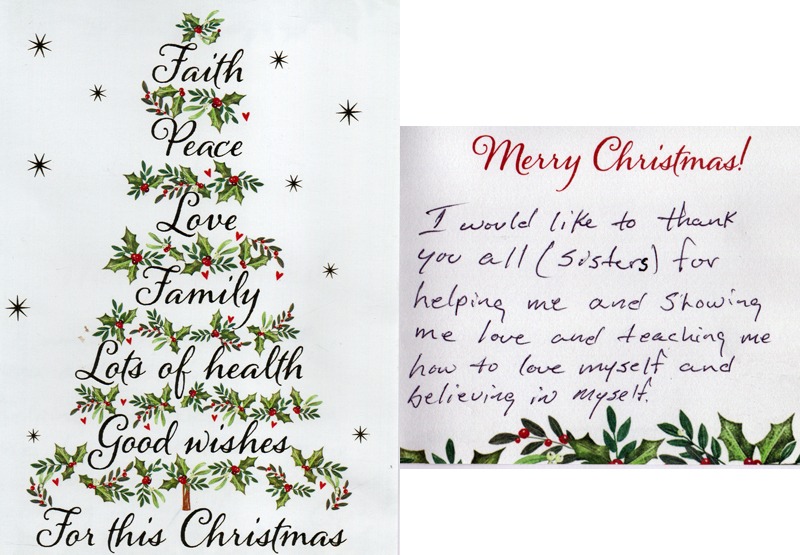 Faith
Peace
Love
Family
Lots of health
Good wishes
For this Christmas
Merry Christmas!
I would like to thank
you all (sisters) for
helping me and showing
me love and teaching me
how to love myself and
believing in myself.